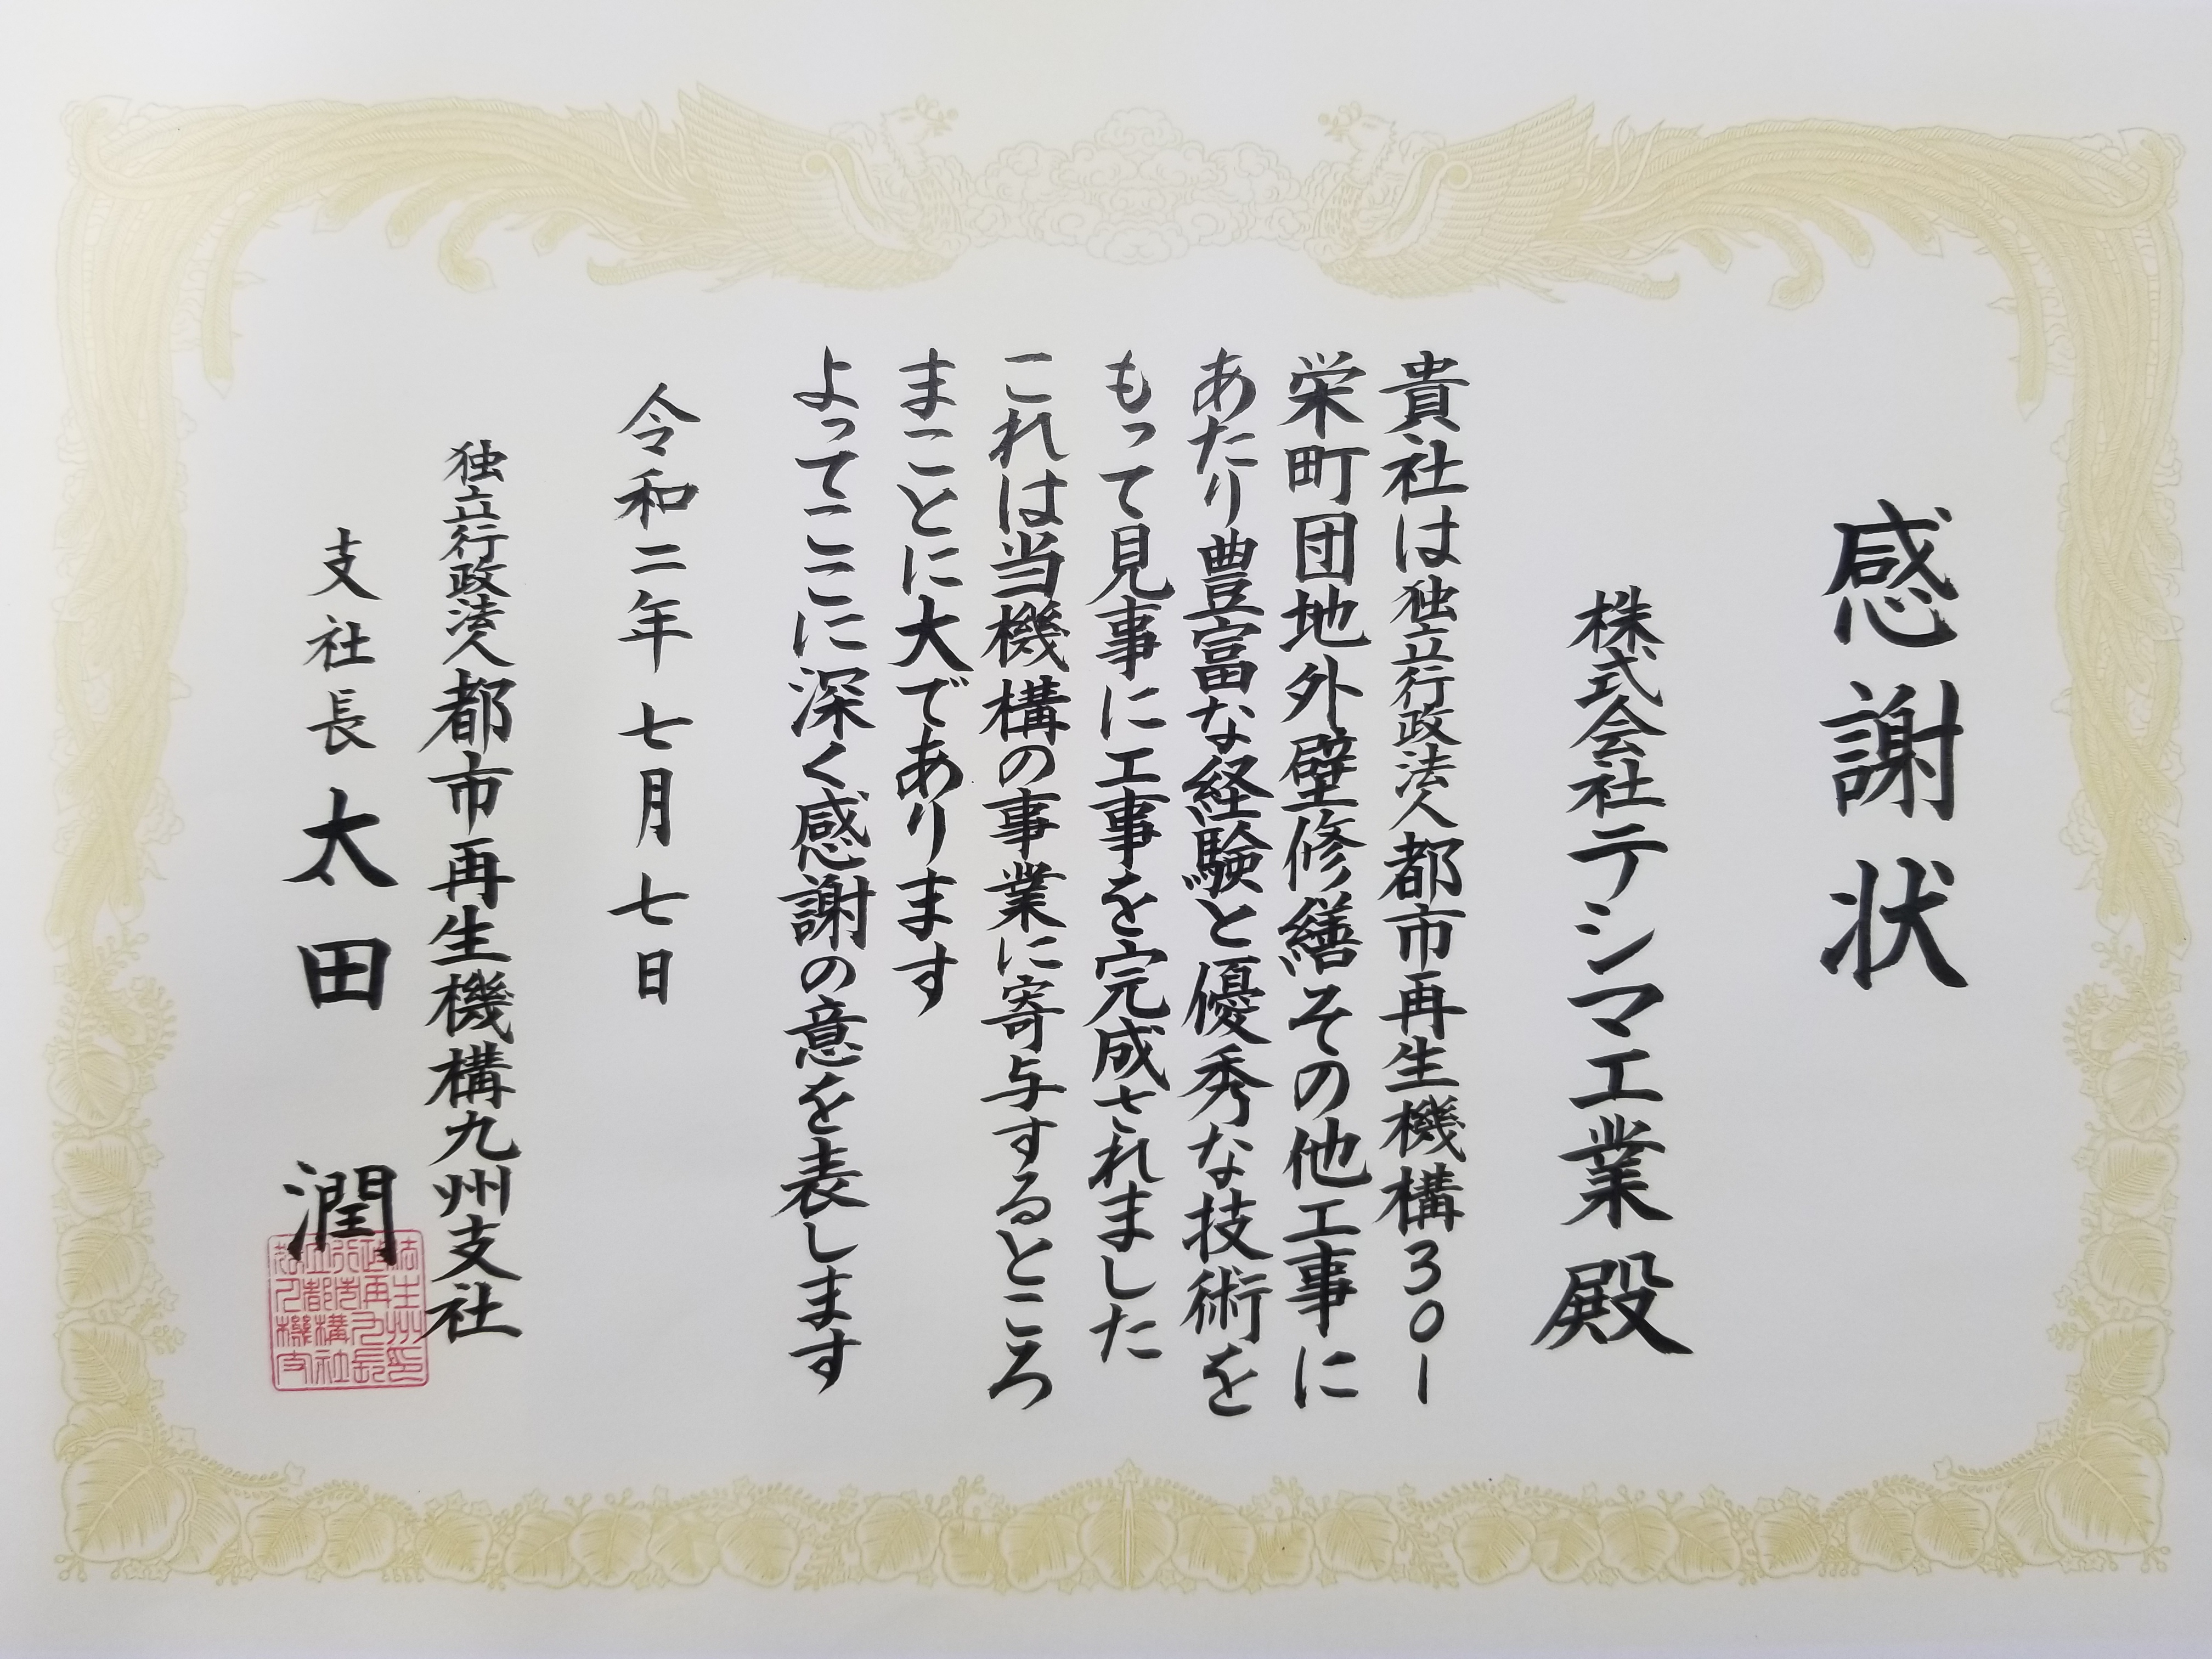 感謝状
株式会社テシマ工業殿
貴社は独立行政法人都市再生機構301
栄町団地外壁修繕その他工事に
あたり豊富な経験と優秀な技術を
もって見事に工事を完成されました
これは当機構の事業に寄与するところ
まことに大であります
よってここに深く感謝の意を表します
令和二年七月七日
独立行政法人都市再生機構九州支社
支社長 太田 潤